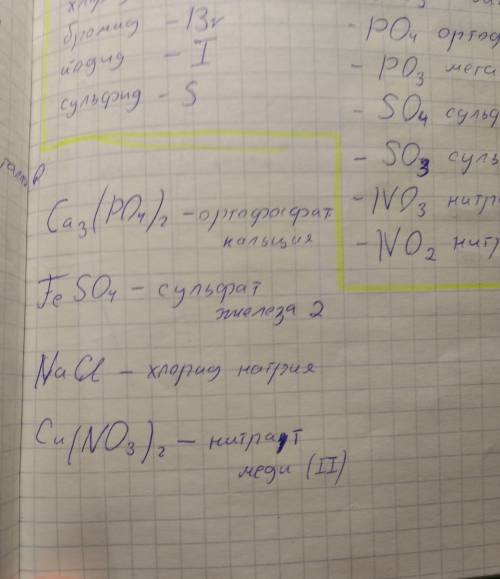 бромид - Br
йодид - I
сульфид - S
- PO4
- PO3 мета
- SO4
- SO3
- NO3
- NO2
Ca3(PO4)2 - ортофосфат
кальция
FeSO4 - сульфат
железа 2
NaCl - хлорид натрия
Cu(NO3)2 - нитрат
меди (II)